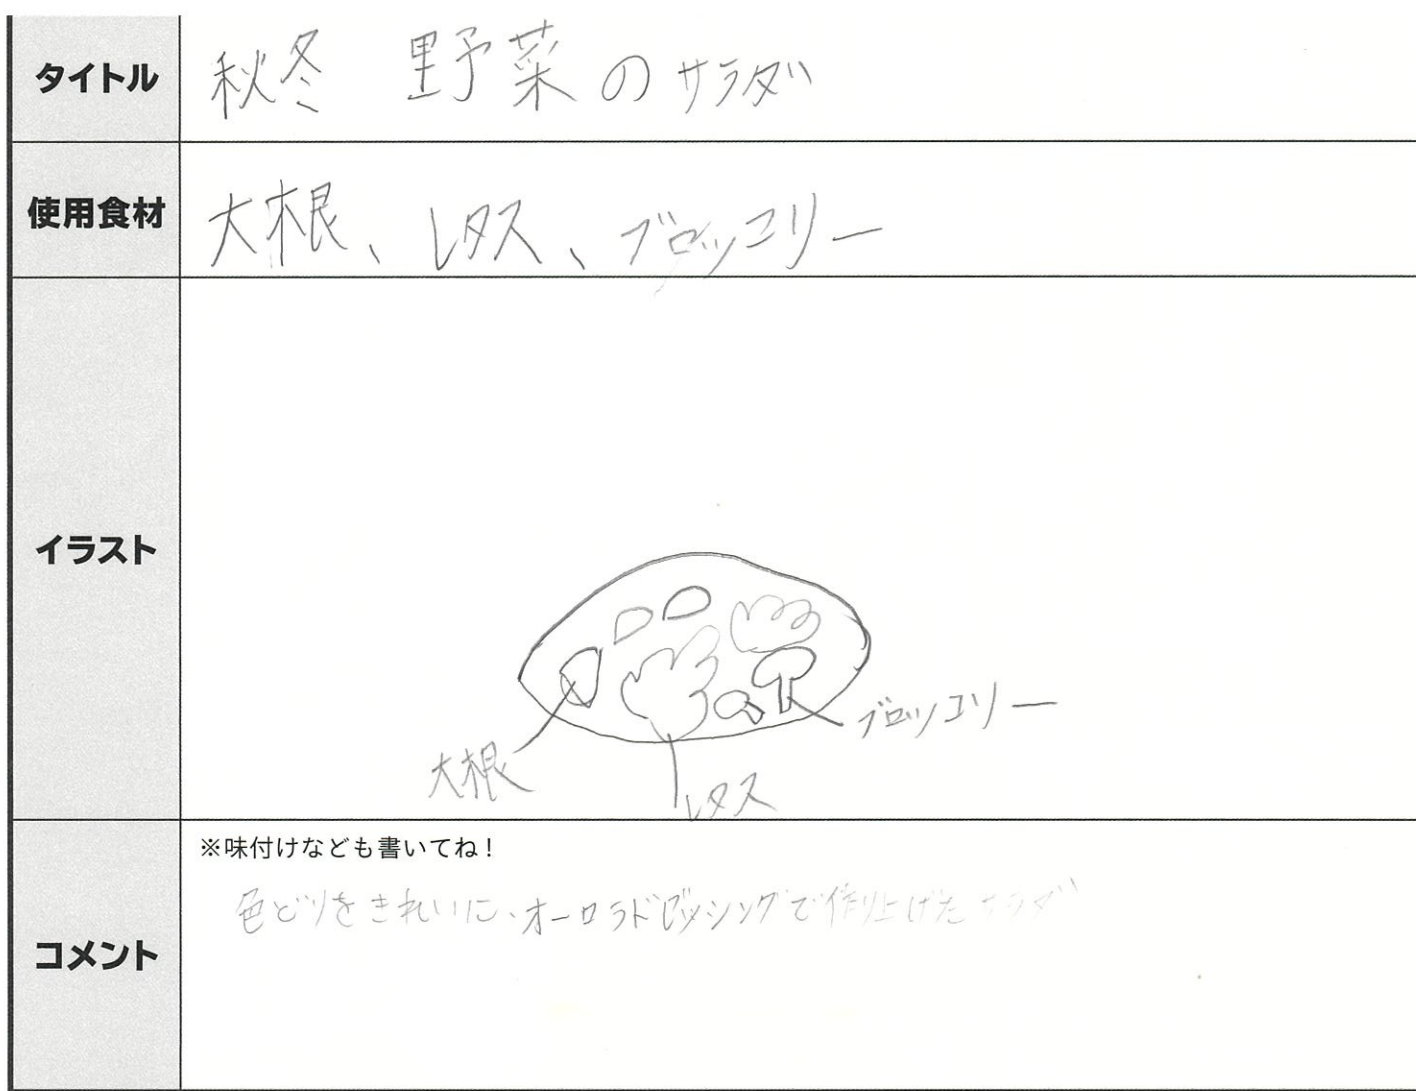 タイトル
秋冬 野菜のサラダ
使用食材
大根、レタス、ブロッコリー
イラスト
大根
レタス
ブロッコリー
コメント
※味付けなども書いてね！
色どりをきれいに、オーロラドレッシングで作り上げたサラダ